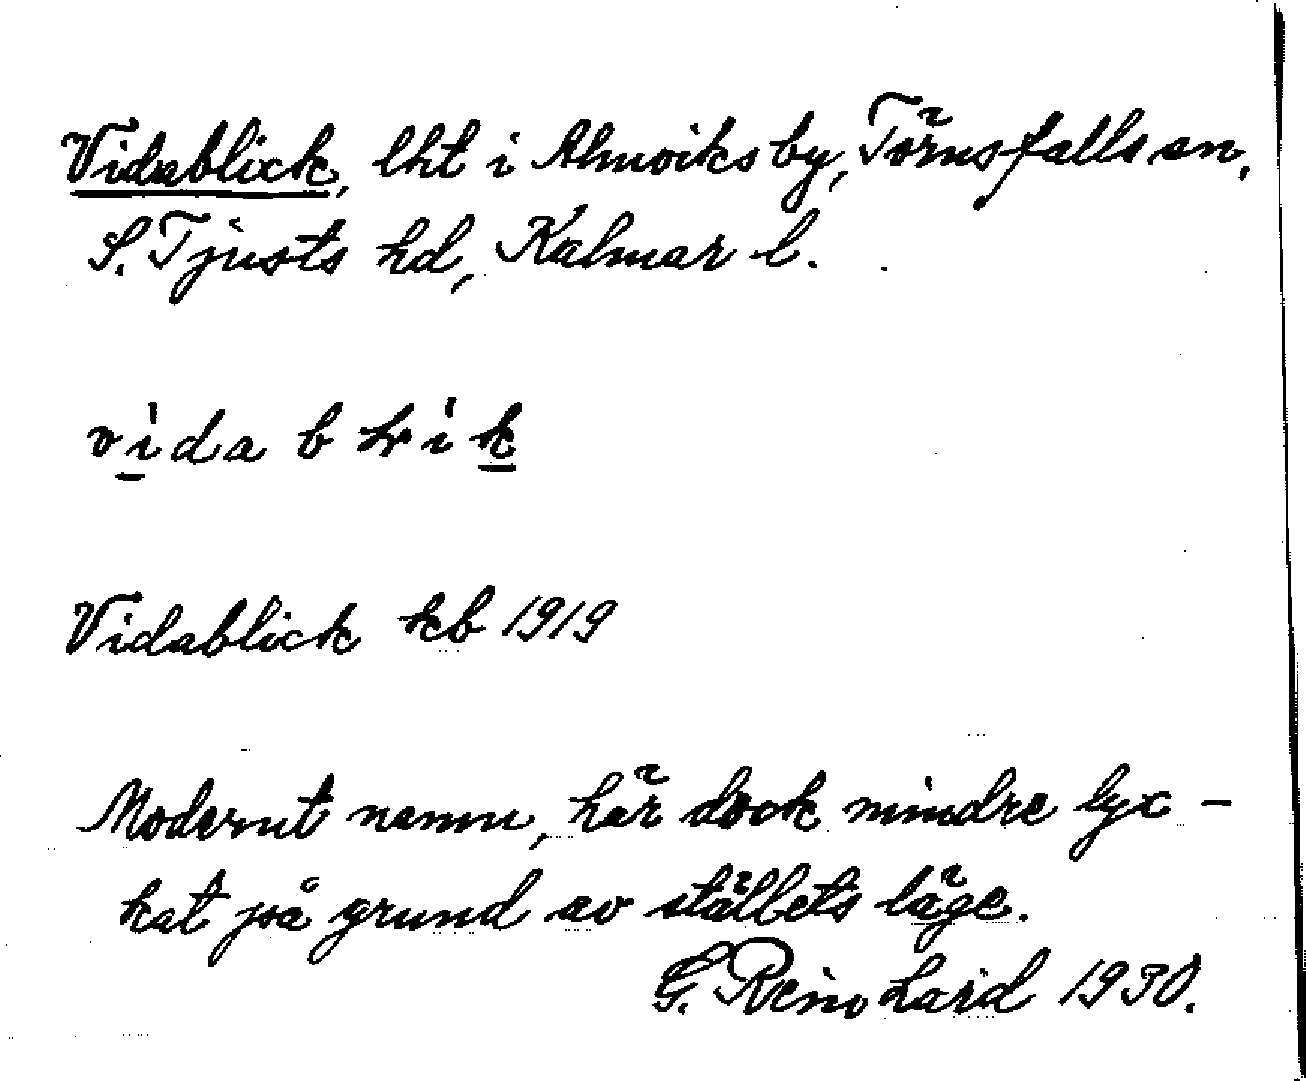 Vidablick, lht i Almviks by, Törnsfalls sn,
S. Tjusts hd, Kalmar l.
vida blik
Vidablick kb 1919
Modernt namn, här dock mindre lyc-
kat på grund av ställets läge.
G. Reinhard 1930.